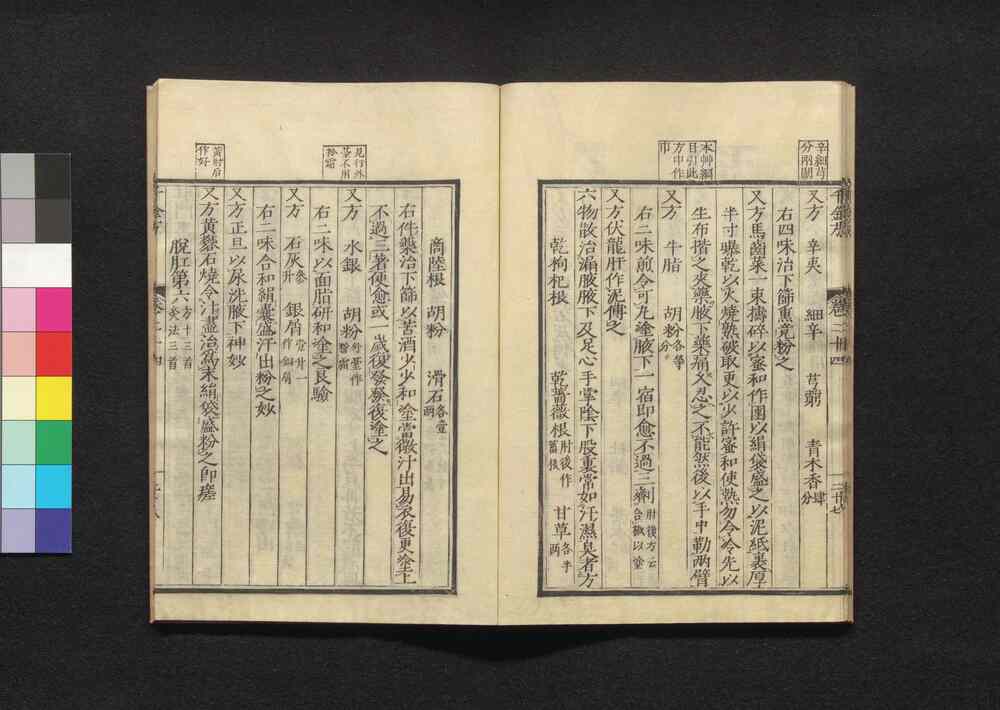 辛細芎
分兩闕
又方 辛夷 細辛 芎藭 青木香肆分
右四味治下篩熏竟粉之
又方馬齒菜一束擣碎以蜜和作團以絹袋盛之以泥紙裹厚
半寸曝乾以火燒熟破取更以少許蜜和使熱勿令冷先以
生布揩之夾藥腋下藥痛久忍之不能然後以手巾勒兩臂
本艸綱
目引此
方中作
巾
又方 牛脂 胡粉各等分
右二味煎令可丸塗腋下一宿即愈不過三劑肘後方云合椒以塗
又方伏龍肝作泥傅之
六物散治漏腋腋下及足心手掌陰下股裏常如汗濕臭者方
乾枸杞根 乾薔薇根肘後作畜根 甘草各半兩
商陸根 胡粉 滑石各壹兩
右件藥治下篩以苦酒少少和塗當微汁出易衣復更塗上
不過三著便愈或一歲復發發復塗之
見行外
臺不用
又方 水銀 胡粉外臺作粉霜
右二味以面脂研和塗之良驗
又方 石灰參升 銀屑壹升一作銅屑
右二味合和絹囊盛汗出粉之妙
又方正旦以尿洗腋下神妙
黃肘后
作好
又方黃礬石燒令汁盡治為末絹袋盛粉之即瘥
脫肛第六方十三首灸法三首